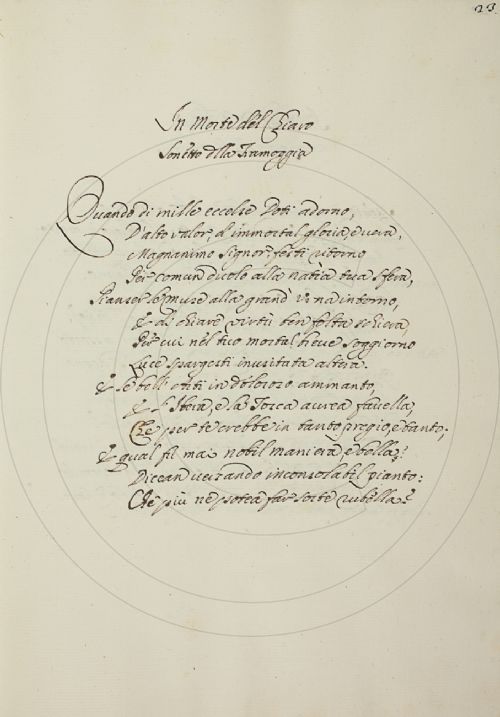 23
In Morte del Chiaro
Sonetto della Tramoggia
Quando di mille eccelse Doti adorno,
D'alto valor, d'immortal gloria, e vera,
Magnanimo Signor, festi ritorno
Per comun duolo alla natia tua sfera,
Pianser le muse alla grand' Urna intorno,
E di chiare virtù ben folta schiera,
Per cui nel tuo mortal breve soggiorno
Luce spargesti inusitata altera.
E le bell' arti in doloroso ammanto,
E l' Storia, e la Tosca aurea favella,
Che per te crebbe in tanto pregio, e vanto;
E qual fu mai nobil maniera, e bella?
Dicean versando inconsolabil pianto:
Che più ne potea far sorte rubella?